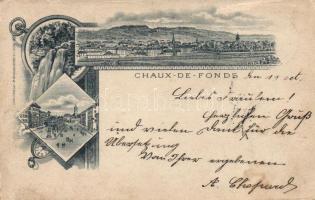 CHAUX-DE-FONDS
den 11 Oct.
Liebes Fräulein!
herzlichen Gruß
und vielen Dank für die
Übersetzung
Von Ihrer ergebenen
A. Chopard